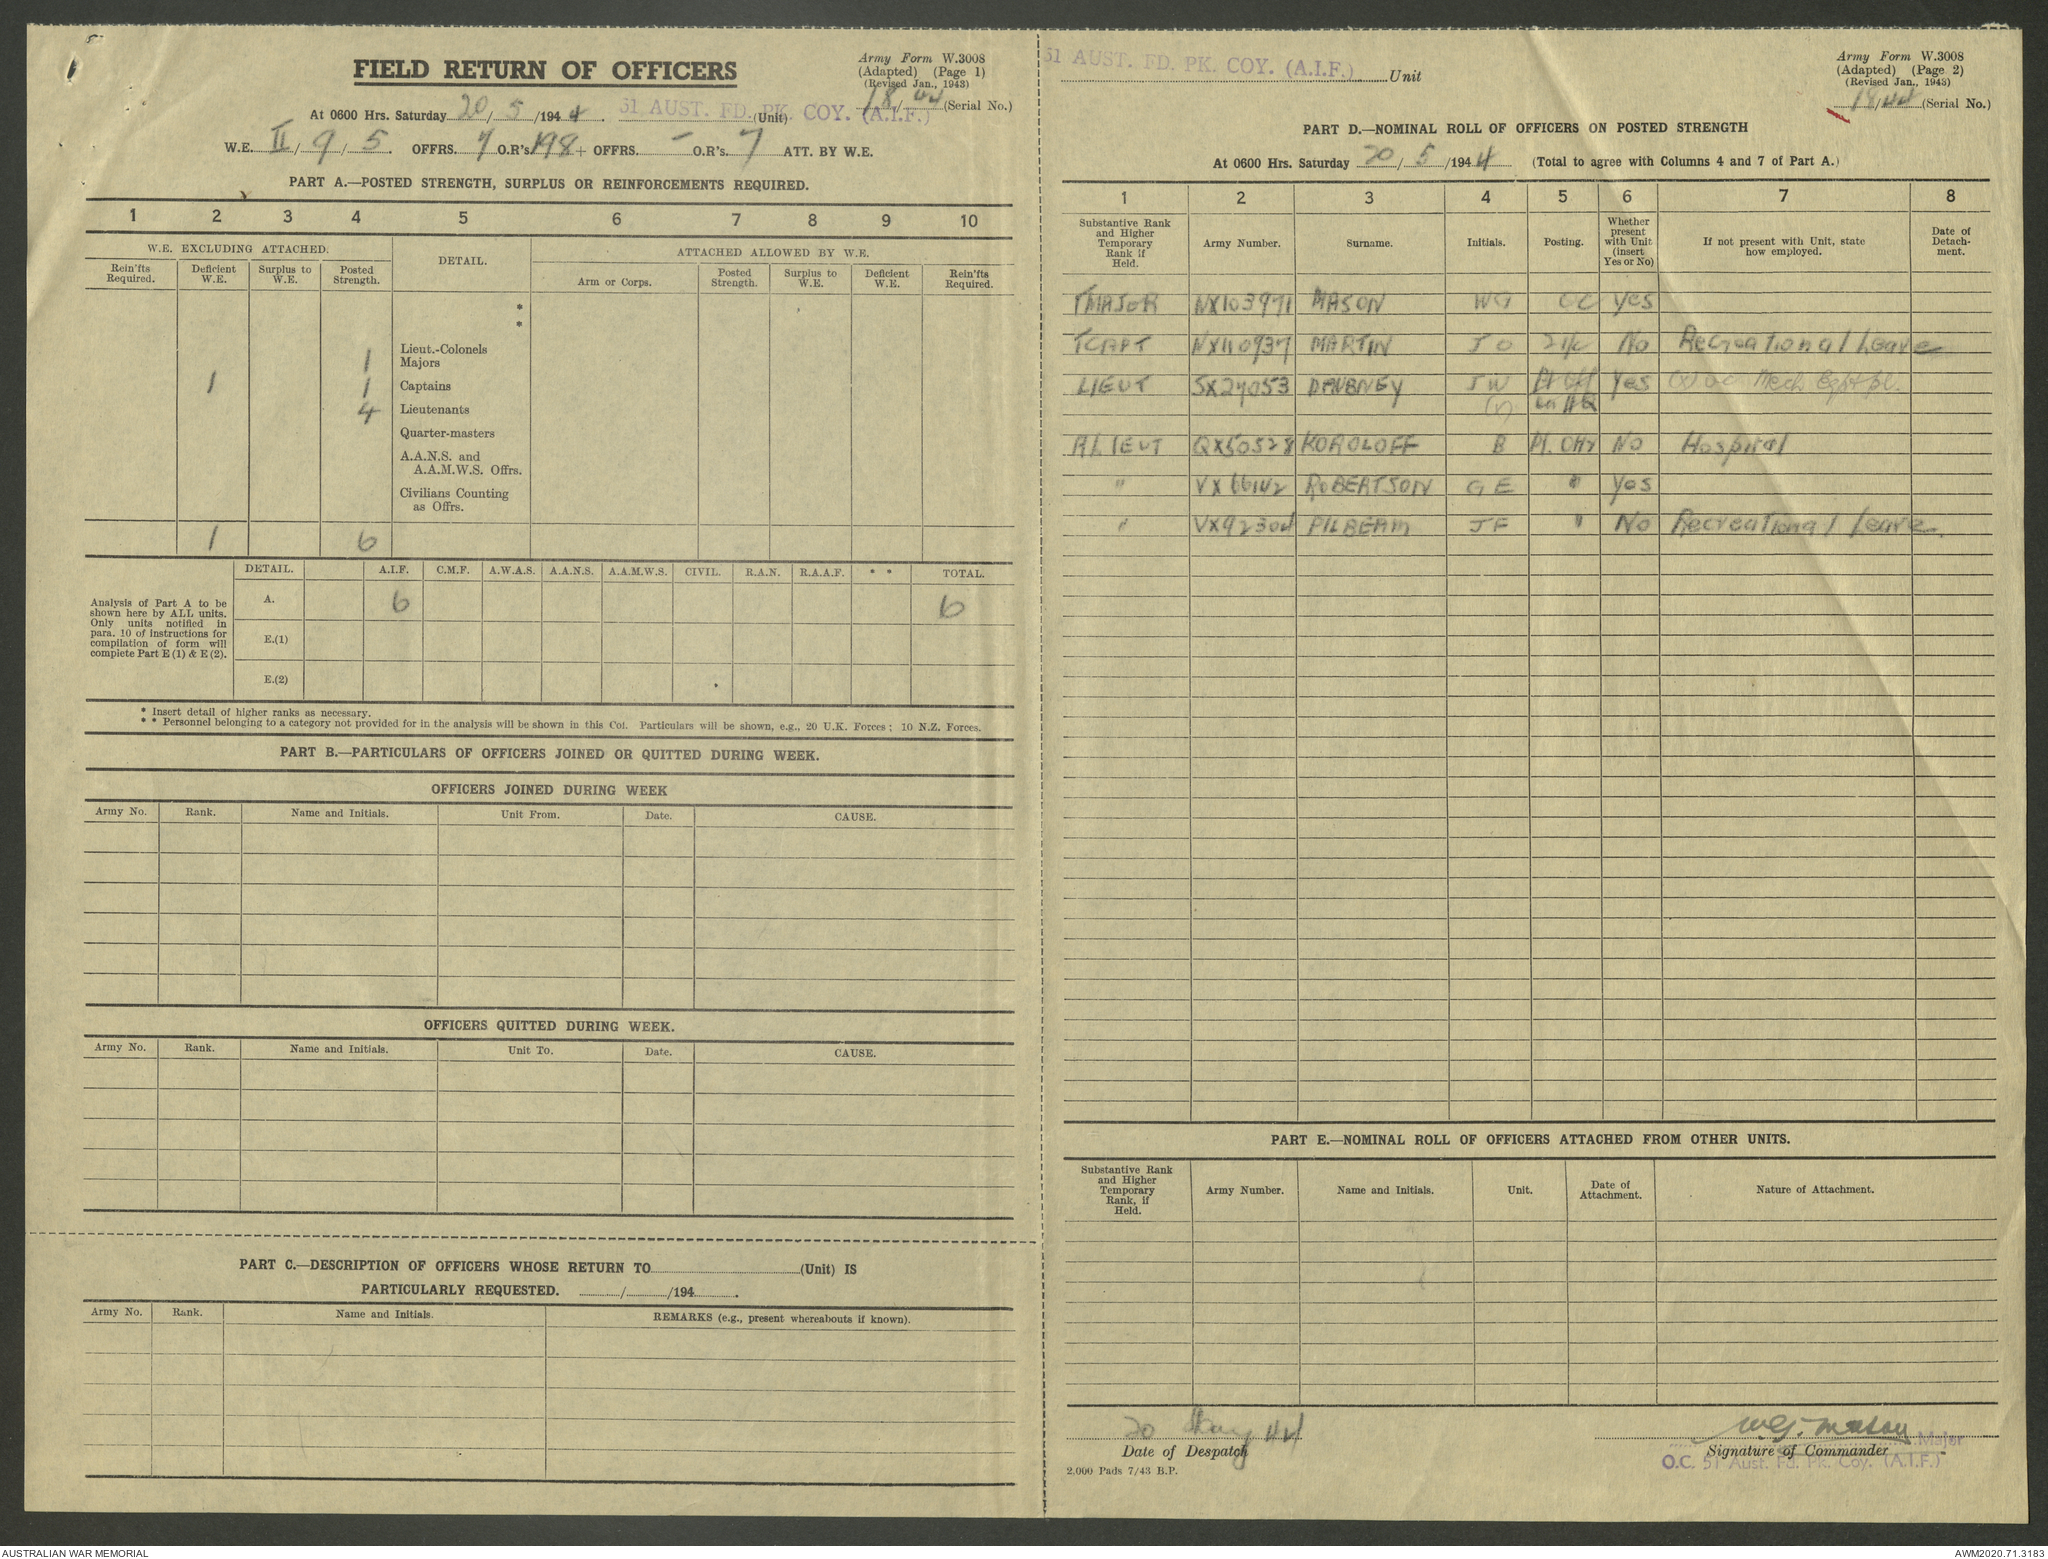 FIELD RETURN OF OFFICERS
Army Form W.3008
(Adapted) (Page 1)
(Revised Jan., 1943)
18/44 (Serial No.)
At 0600 Hrs. Saturday 20/5/1944. 51 AUST. FD. PK. COY. (A.I.F.) (Unit)
W.E. II/9/5. OFFRS. 7 O.R's 198 + OFFRS. - O.R's. 7 ATT. BY W.E.
PART A.—POSTED STRENGTH, SURPLUS OR REINFORCEMENTS REQUIRED.
1 2 3 4 5 6 7 8 9 10
W.E. EXCLUDING ATTACHED. DETAIL. ATTACHED ALLOWED BY W.E.
Rein'fts Required. Deficient W.E. Surplus to W.E. Posted Strength. Arm or Corps. Posted Strength. Surplus to W.E. Deficient W.E. Rein'fts Required.
*
*
Lieut.-Colonels
1 Majors
1 1 Captains
4 Lieutenants
Quarter-masters
A.A.N.S. and
A.A.M.W.S. Offrs.
Civilians Counting
as Offrs.
1 6
Analysis of Part A to be shown here by ALL units. Only units notified in para. 10 of instructions for compilation of form will complete Part E (1) & E (2).
DETAIL. A.I.F. C.M.F. A.W.A.S. A.A.N.S. A.A.M.W.S. CIVIL. R.A.N. R.A.A.F. * * TOTAL.
A. 6 6
E.(1)
E.(2)
* Insert detail of higher ranks as necessary.
* * Personnel belonging to a category not provided for in the analysis will be shown in this Col. Particulars will be shown, e.g., 20 U.K. Forces; 10 N.Z. Forces.
PART B.—PARTICULARS OF OFFICERS JOINED OR QUITTED DURING WEEK.
OFFICERS JOINED DURING WEEK
Army No. Rank. Name and Initials. Unit From. Date. CAUSE.
OFFICERS QUITTED DURING WEEK.
Army No. Rank. Name and Initials. Unit To. Date. CAUSE.
PART C.—DESCRIPTION OF OFFICERS WHOSE RETURN TO (Unit) IS
PARTICULARLY REQUESTED. / /194 .
Army No. Rank. Name and Initials. REMARKS (e.g., present whereabouts if known).
51 AUST. FD. PK. COY. (A.I.F.) Unit
Army Form W.3008
(Adapted) (Page 2)
(Revised Jan., 1943)
18/44 (Serial No.)
PART D.—NOMINAL ROLL OF OFFICERS ON POSTED STRENGTH
At 0600 Hrs. Saturday 20/5/1944 (Total to agree with Columns 4 and 7 of Part A.)
1 2 3 4 5 6 7 8
Substantive Rank and Higher Temporary Rank if Held. Army Number. Surname. Initials. Posting. Whether present with Unit (insert Yes or No) If not present with Unit, state how employed. Date of Detachment.
TMAJOR NX103971 MASON WG OC Yes
TCAPT NX110937 MARTIN JO 2i/c No Recreational Leave
LIEUT SX27053 DAUBNEY JW Pl Off Yes (x) oc Mech Eqpt pl.
(x) on HQ
RLIEUT QX50528 KOROLOFF B Pl. Offr No Hospital
" VX66142 ROBERTSON GE " Yes
" VX92304 PILBEAM JF " No Recreational Leave.
PART E.—NOMINAL ROLL OF OFFICERS ATTACHED FROM OTHER UNITS.
Substantive Rank and Higher Temporary Rank, if Held. Army Number. Name and Initials. Unit. Date of Attachment. Nature of Attachment.
20 May 44 W.G. Mason Major
Date of Despatch Signature of Commander
O.C. 51 Aust. Fd. Pk. Coy. (A.I.F.)
2,000 Pads 7/43 B.P.
AUSTRALIAN WAR MEMORIAL AWM2020.71.3183